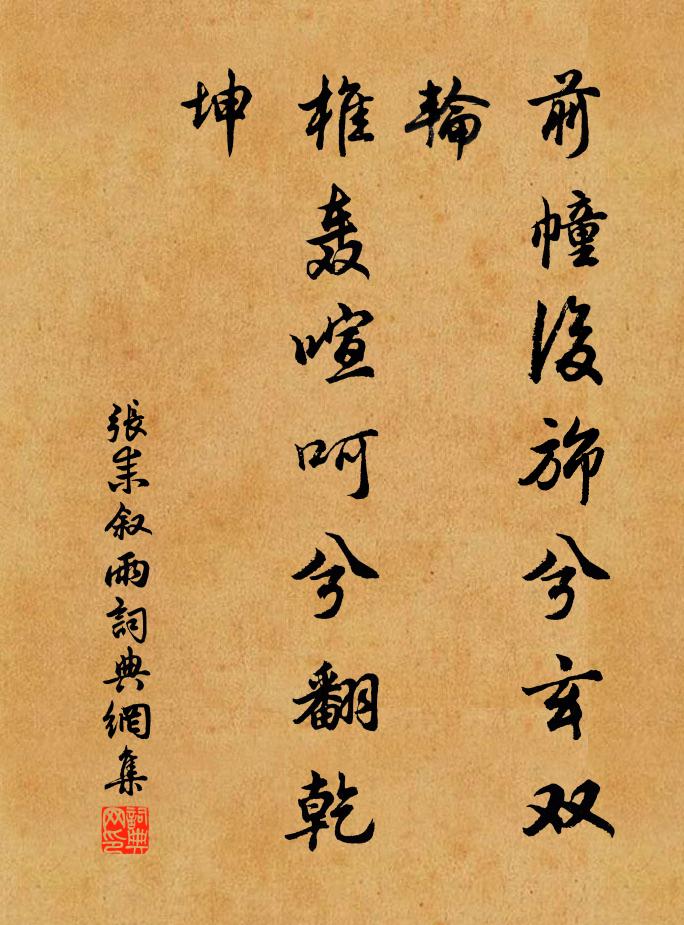 前幢後旆兮玄双
輪
椎轰喧呵兮翻乾
坤
張耒叙雨詞典網集
詞典
网印